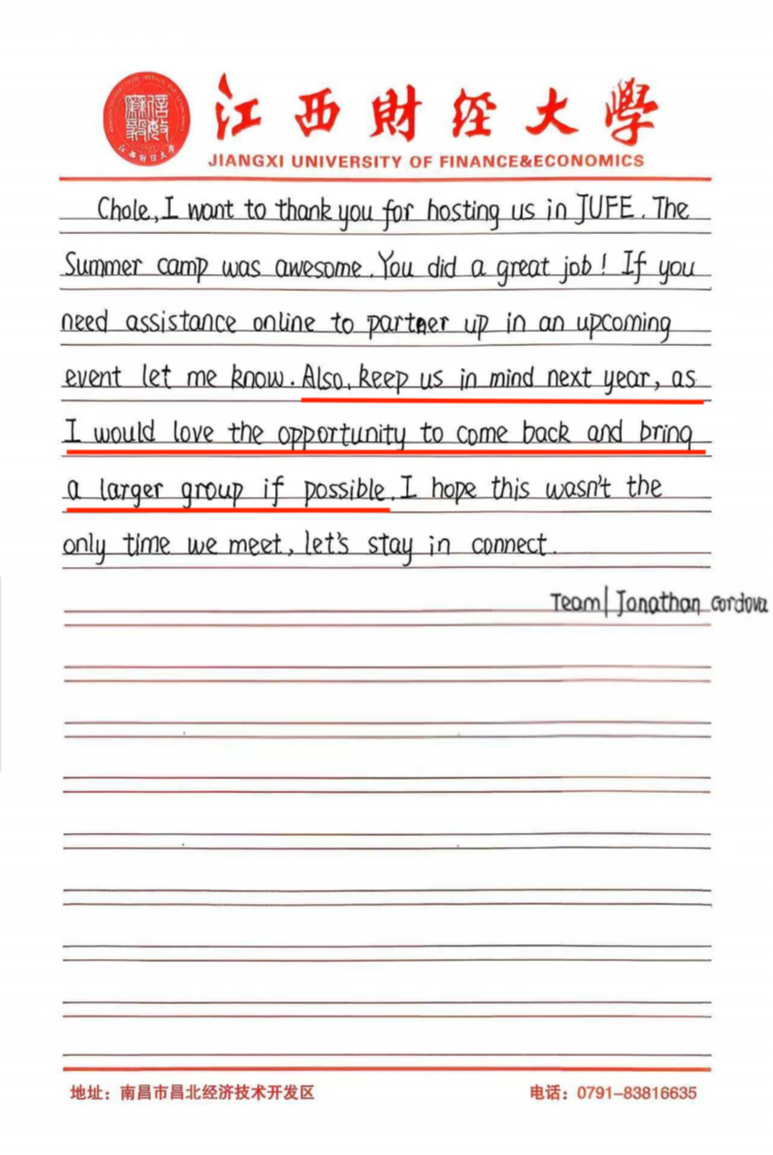 江西財經大學
JIANGXI UNIVERSITY OF FINANCE&ECONOMICS
Chole, I want to thank you for hosting us in JUFE. The
Summer camp was awesome. You did a great job! If you
need assistance online to partner up in an upcoming
event let me know. Also, keep us in mind next year, as
I would love the opportunity to come back and bring
a larger group if possible. I hope this wasn't the
only time we meet, let's stay in connect.
Team| Jonathan Cordova
地址：南昌市昌北经济技术开发区
电话：0791-83816635